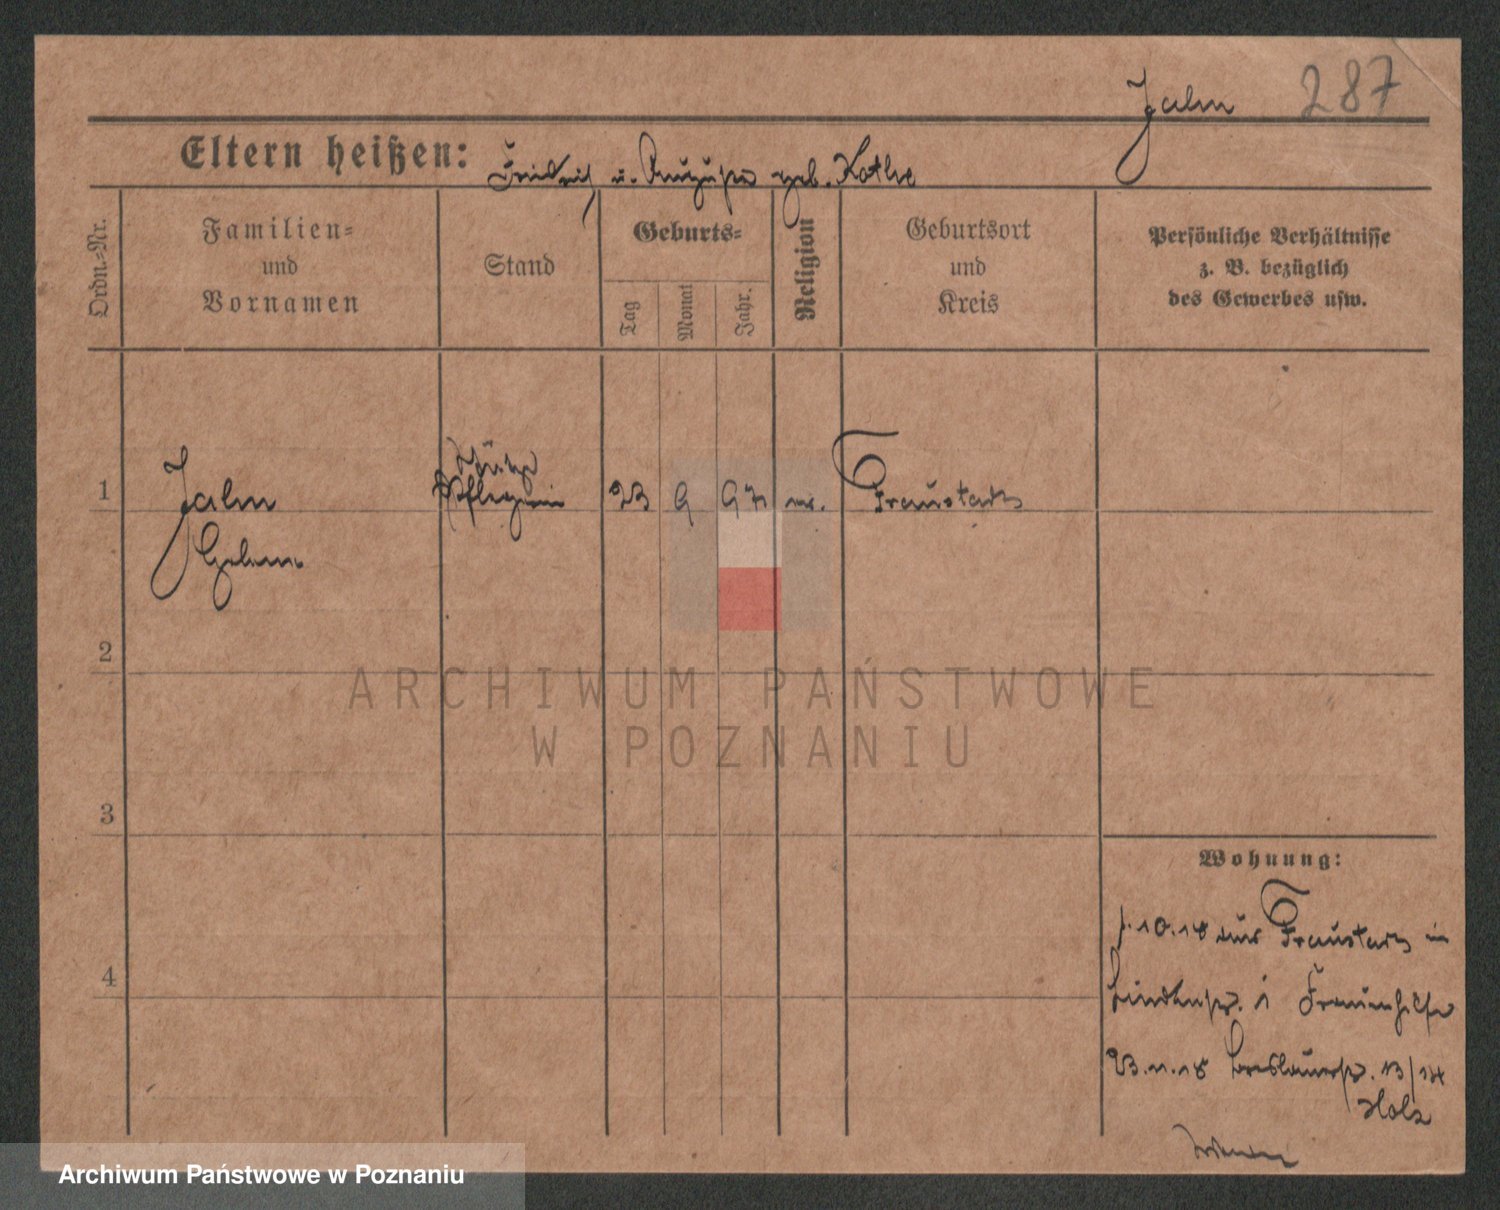 Jahn 287
Eltern heißen: Friedrich u. Auguste geb. Kothe
Ordn.-Nr.
Familien-
und
Vornamen
Stand
Geburts-
Tag
Monat
Jahr.
Religion
Geburtsort
und
Kreis
Persönliche Verhältnisse
z. B. bezüglich
des Gewerbes usw.
Stütze
1 Jahn Pflegerin 23 9 97 ev. Fraustadt
Helene
2
ARCHIWUM PAŃSTWOWE
W POZNANIU
3
Wohnung:
1.10.18 aus Fraustadt in
4
Lindenstr. 1 Frauenhilfe
23.11.18 Breslauerstr. 13/14
Holz
Archiwum Państwowe w Poznaniu